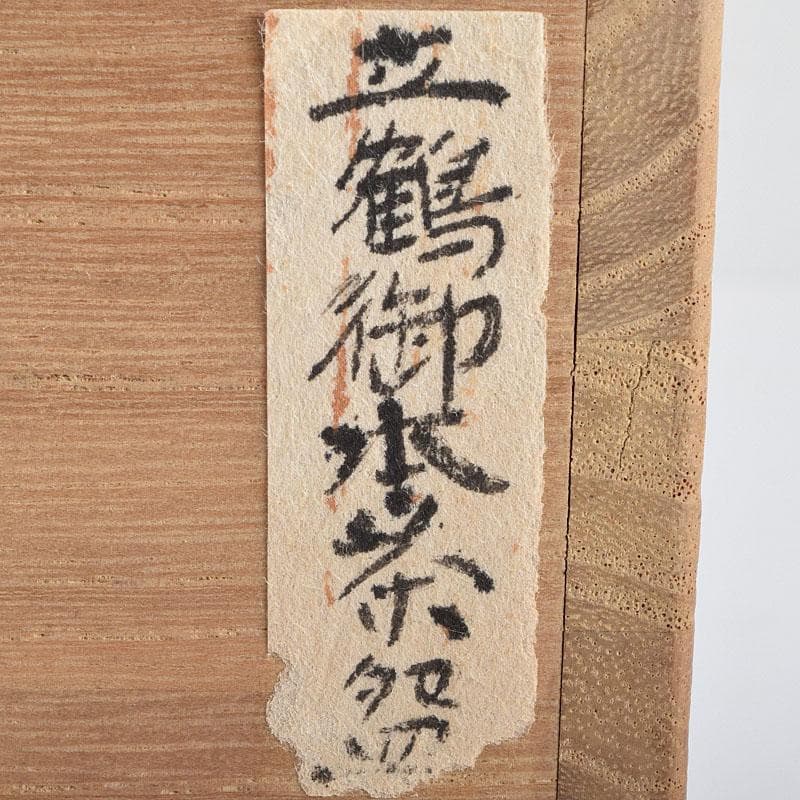 立鶴御本茶碗